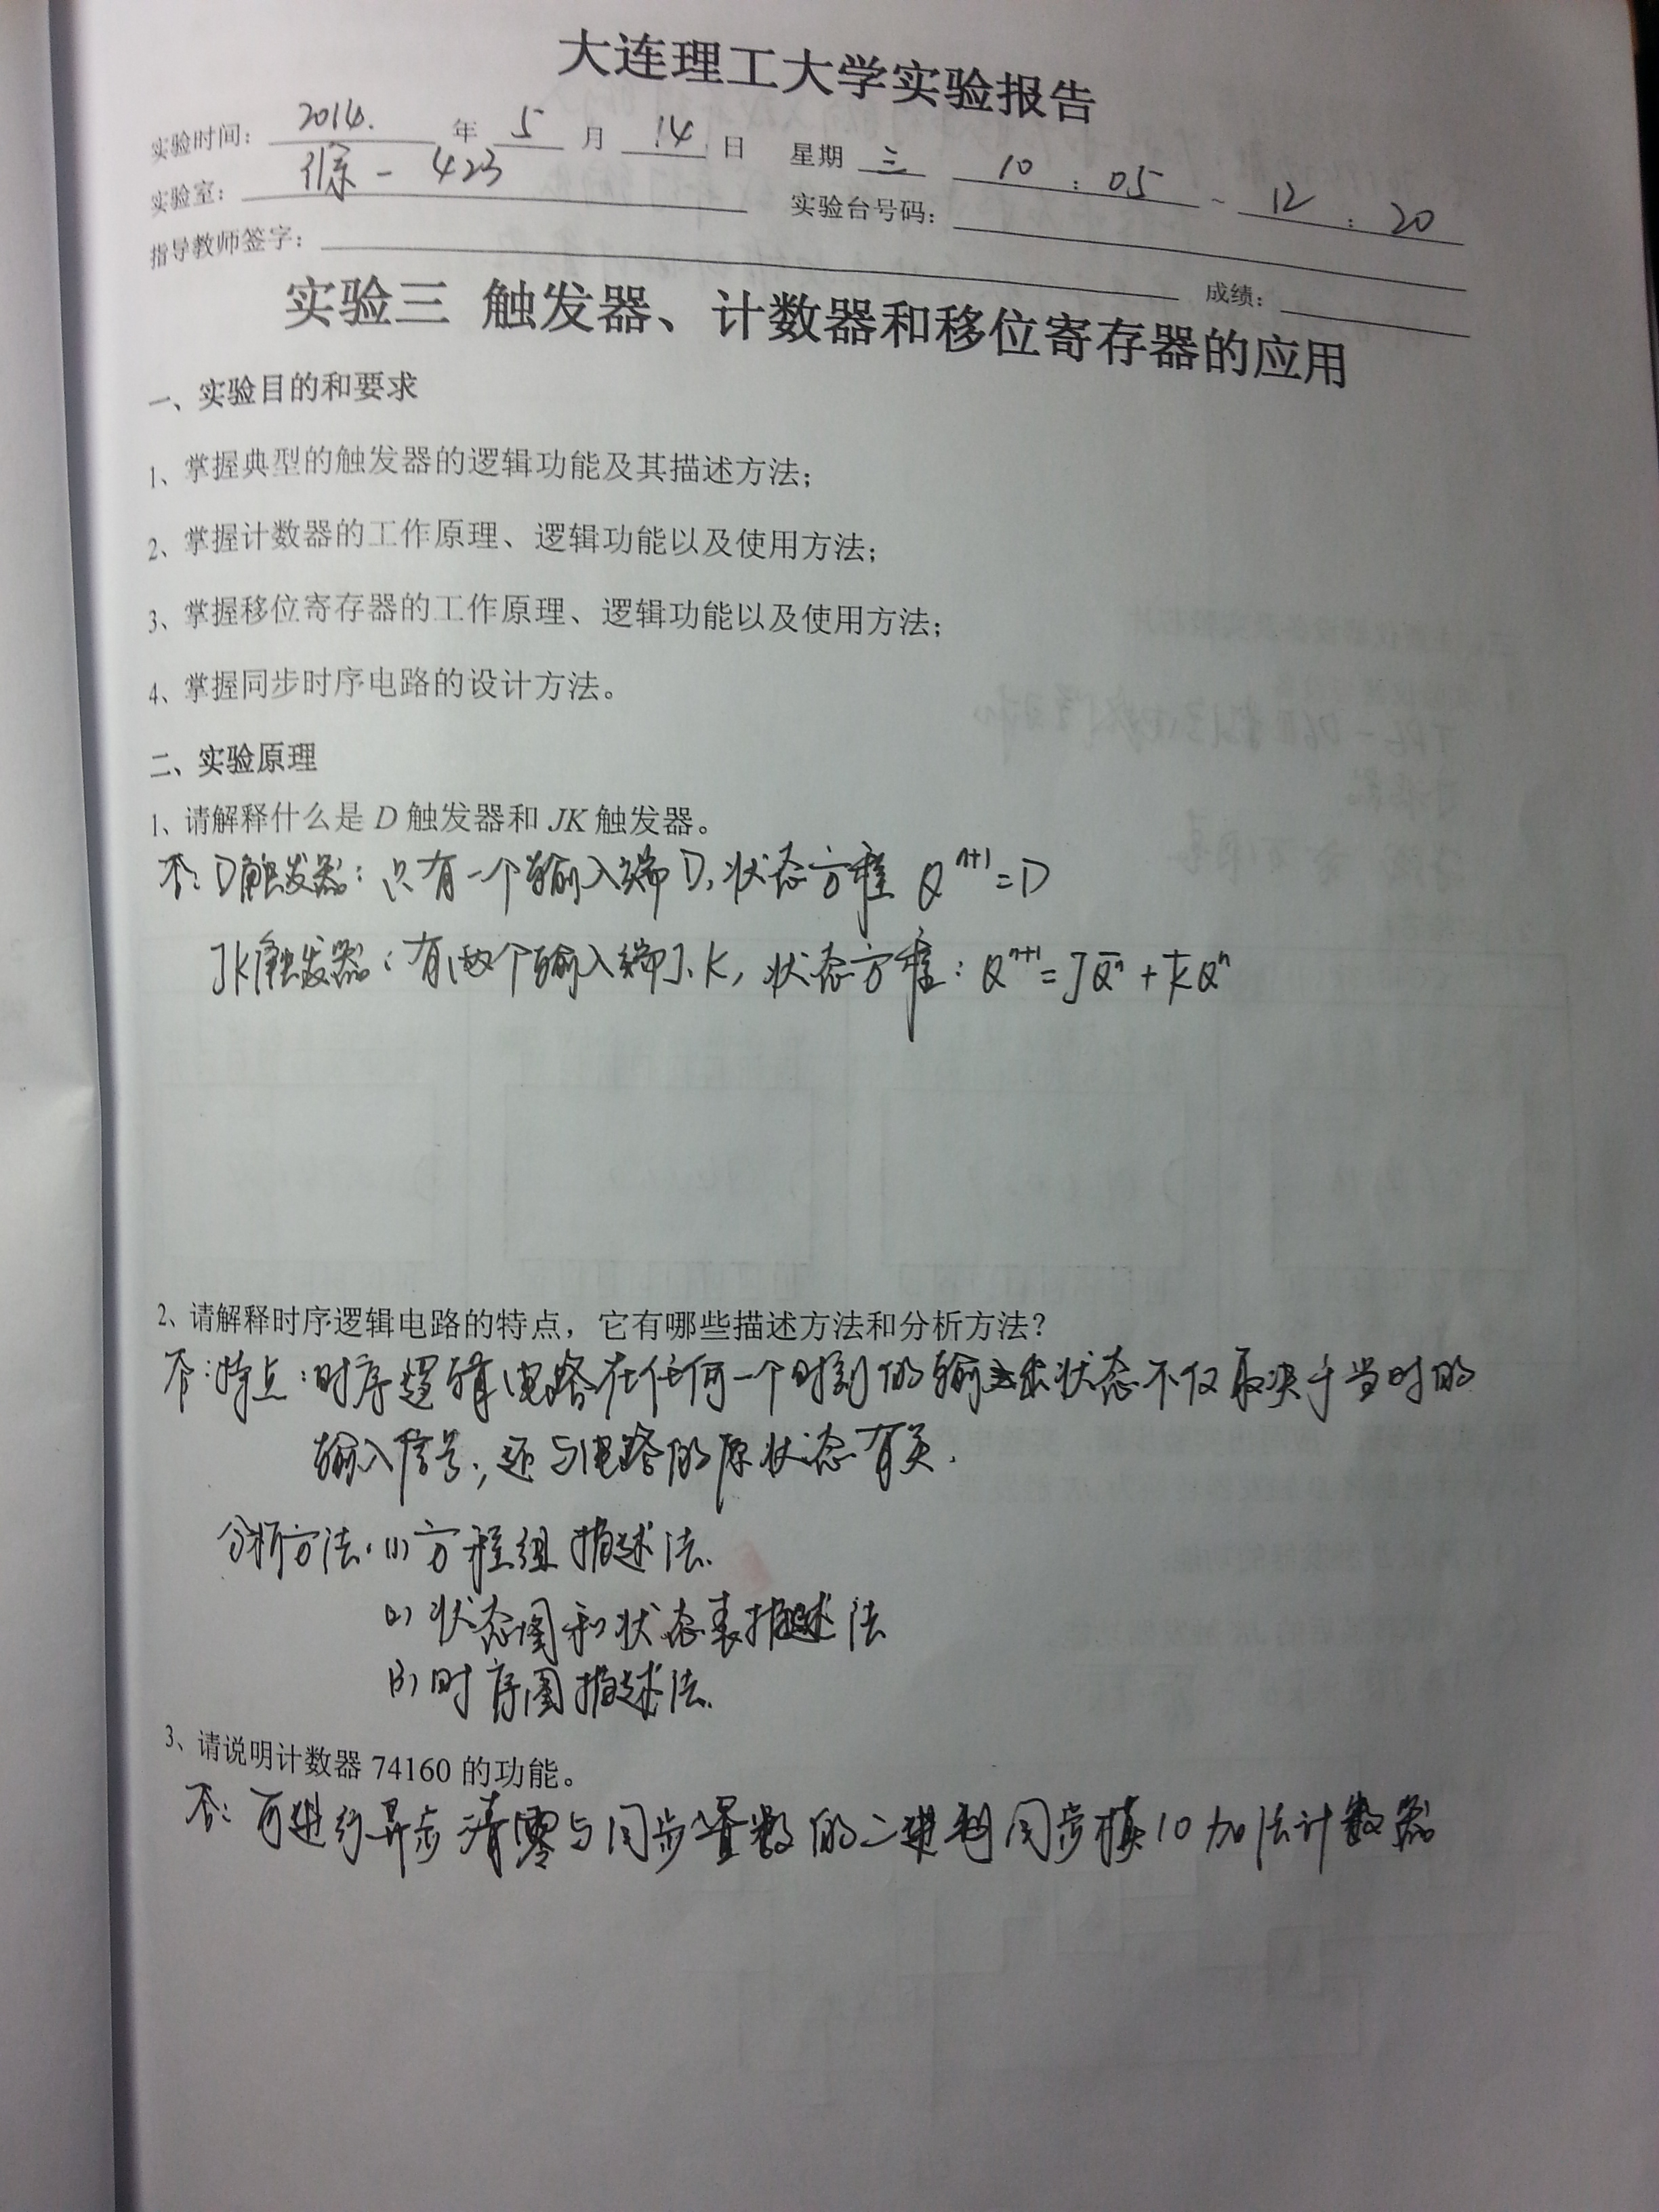 大连理工大学实验报告
实验时间: 2014. 年 5 月 14 日 星期 三 10 : 05 ~ 12 : 20
实验室: 馀-423 实验台号码:
指导教师签字: 成绩:
实验三 触发器、计数器和移位寄存器的应用
一、实验目的和要求
1、掌握典型的触发器的逻辑功能及其描述方法;
2、掌握计数器的工作原理、逻辑功能以及使用方法;
3、掌握移位寄存器的工作原理、逻辑功能以及使用方法;
4、掌握同步时序电路的设计方法。
二、实验原理
1、请解释什么是 D 触发器和 JK 触发器。
答: D触发器: 只有一个输入端D, 状态方程 Qⁿ⁺¹=D
JK触发器: 有两个输入端J、K, 状态方程: Qⁿ⁺¹=JQ̄ⁿ+K̄Qⁿ
2、请解释时序逻辑电路的特点，它有哪些描述方法和分析方法?
答:特点:时序逻辑电路在任何一个时刻的输出状态不仅取决于当时的
输入信号,还与电路的原状态有关.
分析方法:(1)方程组描述法.
(2)状态图和状态表描述法
(3)时序图描述法.
3、请说明计数器 74160 的功能。
答: 可进行异步清零与同步置数的二进制同步模10加法计数器